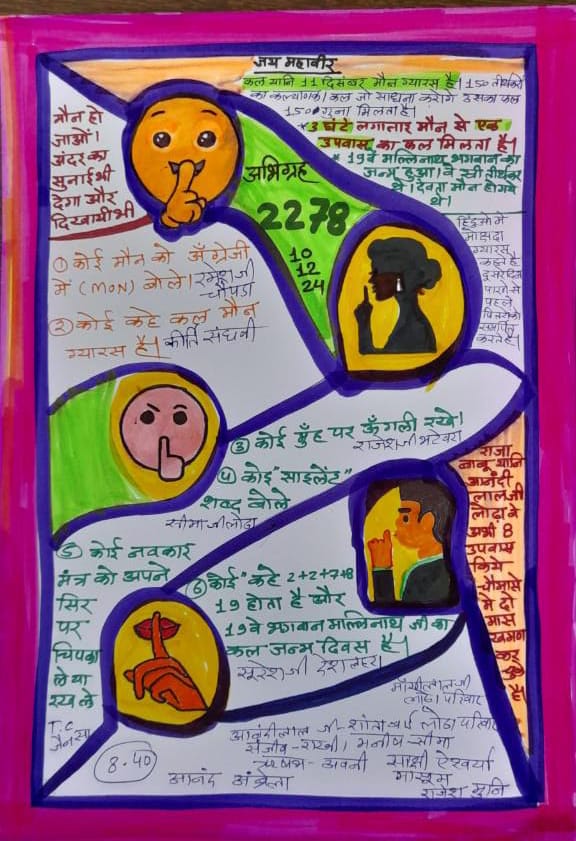 जय महावीर
कल यानि 11 दिसंबर मौन ग्यारस है। 150 तीर्थंकरो
का कल्याणक। कल जो साधना करोगे उसका फल
150 गुना मिलता है।
*3 घंटे लगातार मौन से एक
उपवास का फल मिलता है।
* 19वे मल्लिनाथ भगवान का
जन्म हुआ। वे स्त्री तीर्थंकर
थे। देवता मौन होगये
थे।
मौन हो
जाओं।
अंदर का
सुनाई भी
देगा और
दिखायी भी
अभिग्रह
2278
10
12
24
हिंदुओ में
मोक्षदा
ग्यारस
कहते है
दुसरे दिन
पारणे से
पहले
करते है।
① कोई मौन को अँग्रेजी
में (MON) बोले। रमेश जी
चौपडा
② कोई कहे कल मौन
ग्यारस है। कीर्ति संघवी
③ कोई मुँह पर ऊँगली रखे।
राजेश जी भटेवरा
④ कोई "साइलेंट"
शब्द बोले
सीमा जी लोढा
राजा
बाबू यानि
आनंदी
लाल जी
लोढ़ा ने
अभी 8
उपवास
किये
चौमासे
में दो
मास
खमण
कर चुके
है
⑤ कोई नवकार
मंत्र को अपने
सिर
पर
चिपका
ले या
रख ले
⑥ कोई" कहे 2+2+7+8
19 होता है और
19वे भगवान मल्लिनाथ जी का
कल जन्म दिवस है।
सुरेश जी देशलहरा
मांगीलालजी
लोढा परिवार
T.C
जैन सा
8.40
आनंदीलाल जी- शांता बाई लोढा परिवार
संजीव-राखी। मनीष-सीमा
ऋषभ- अवनी साक्षी ऐश्वर्या
मासूम
आनंद अंब्रेला
राजेश मुनि